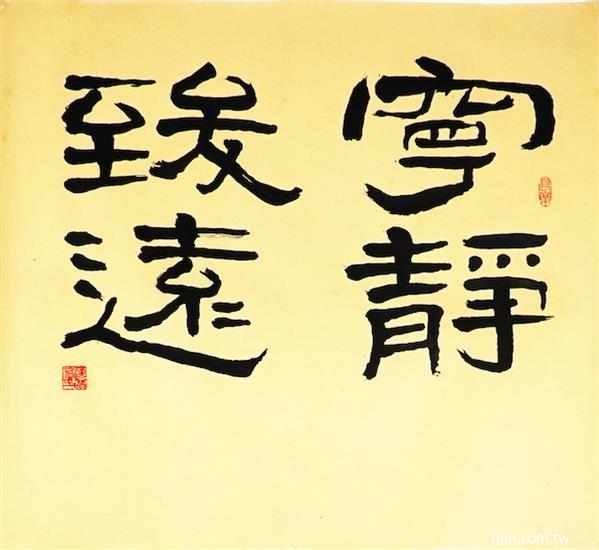 寧靜
致遠
nan.com.tw